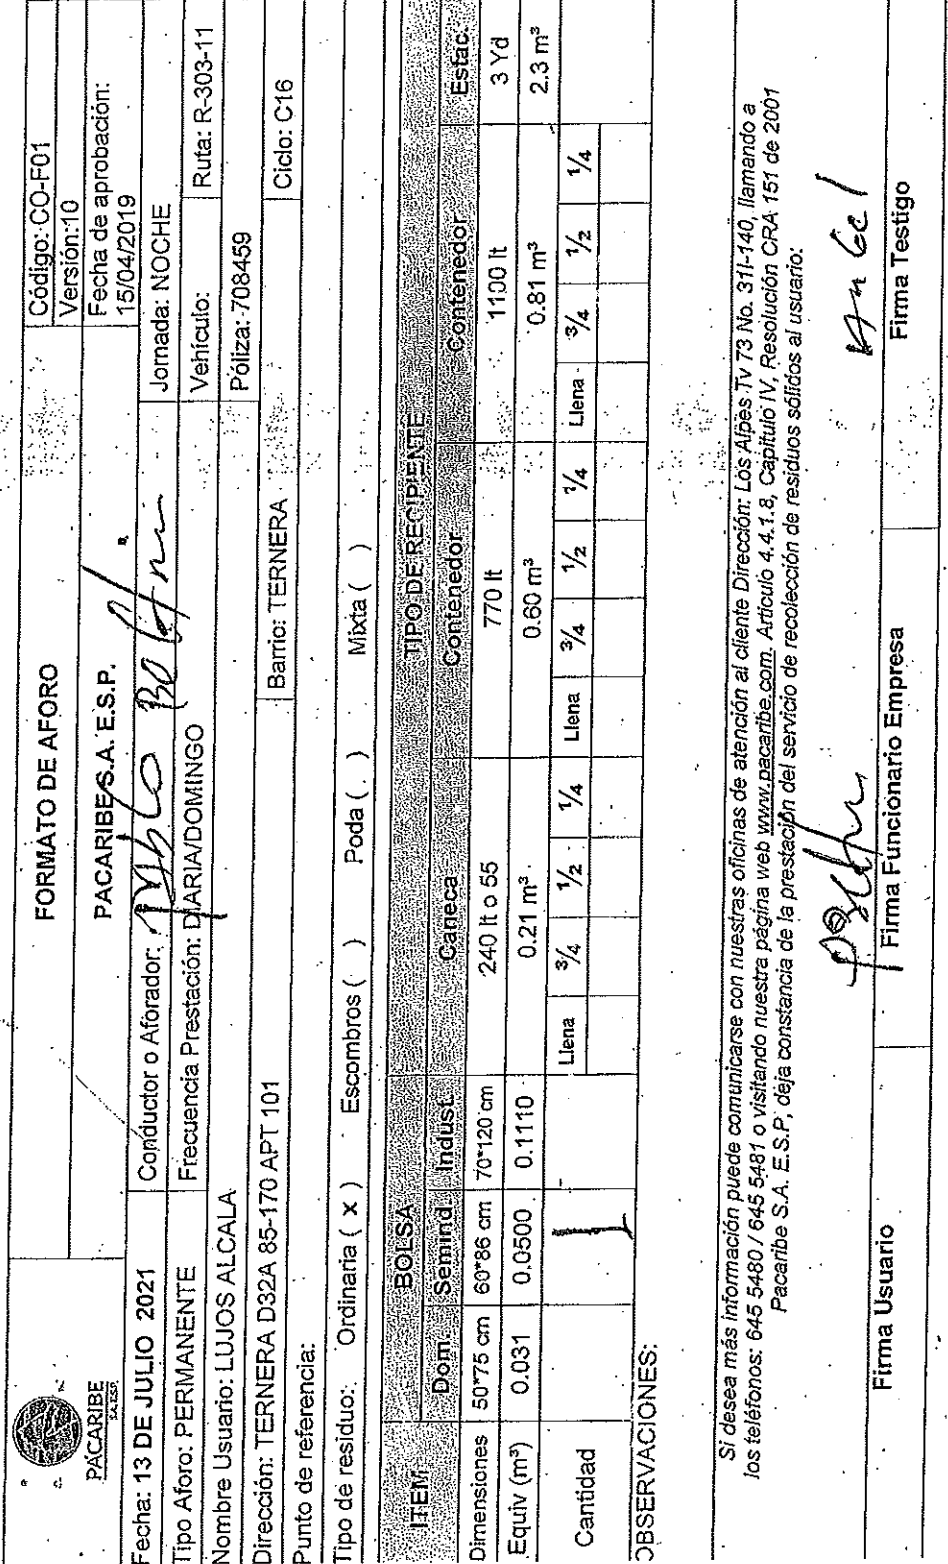 PACARIBE
S.A. E.S.P.
FORMATO DE AFORO
PACARIBE S.A. E.S.P.
Código: CO-F01
Versión:10
Fecha de aprobación:
15/04/2019
Fecha: 13 DE JULIO 2021 Conductor o Aforador: Pablo Jornada: NOCHE
Tipo Aforo: PERMANENTE Frecuencia Prestación: DIARIA/DOMINGO Vehículo: Ruta: R-303-11
Nombre Usuario: LUJOS ALCALA Póliza: 708459
Dirección: TERNERA D32A 85-170 APT 101 Barrio: TERNERA Ciclo: C16
Punto de referencia:
Tipo de residuo: Ordinaria ( x ) Escombros ( ) Poda ( ) Mixta ( )
ITEM BOLSA TIPO DE RECIPIENTE
Dom. Semind. Indust. Caneca Contenedor Contenedor Estac.
Dimensiones 50*75 cm 60*86 cm 70*120 cm 240 lt o 55 770 lt 1100 lt 3 Yd
Equiv (m³) 0.031 0.0500 0.1110 0.21 m³ 0.60 m³ 0.81 m³ 2.3 m³
Cantidad 1 Llena 3/4 1/2 1/4 Llena 3/4 1/2 1/4 Llena 3/4 1/2 1/4
OBSERVACIONES:
Si desea más información puede comunicarse con nuestras oficinas de atención al cliente Dirección: Los Alpes Tv 73 No. 31I-140, llamando a
los teléfonos: 645 5480 / 645 5481 o visitando nuestra página web www.pacaribe.com. Artículo 4.4.1.8, Capítulo IV, Resolución CRA 151 de 2001
Pacaribe S.A. E.S.P, deja constancia de la prestación del servicio de recolección de residuos sólidos al usuario:
Angel
Firma Usuario Firma Funcionario Empresa Firma Testigo